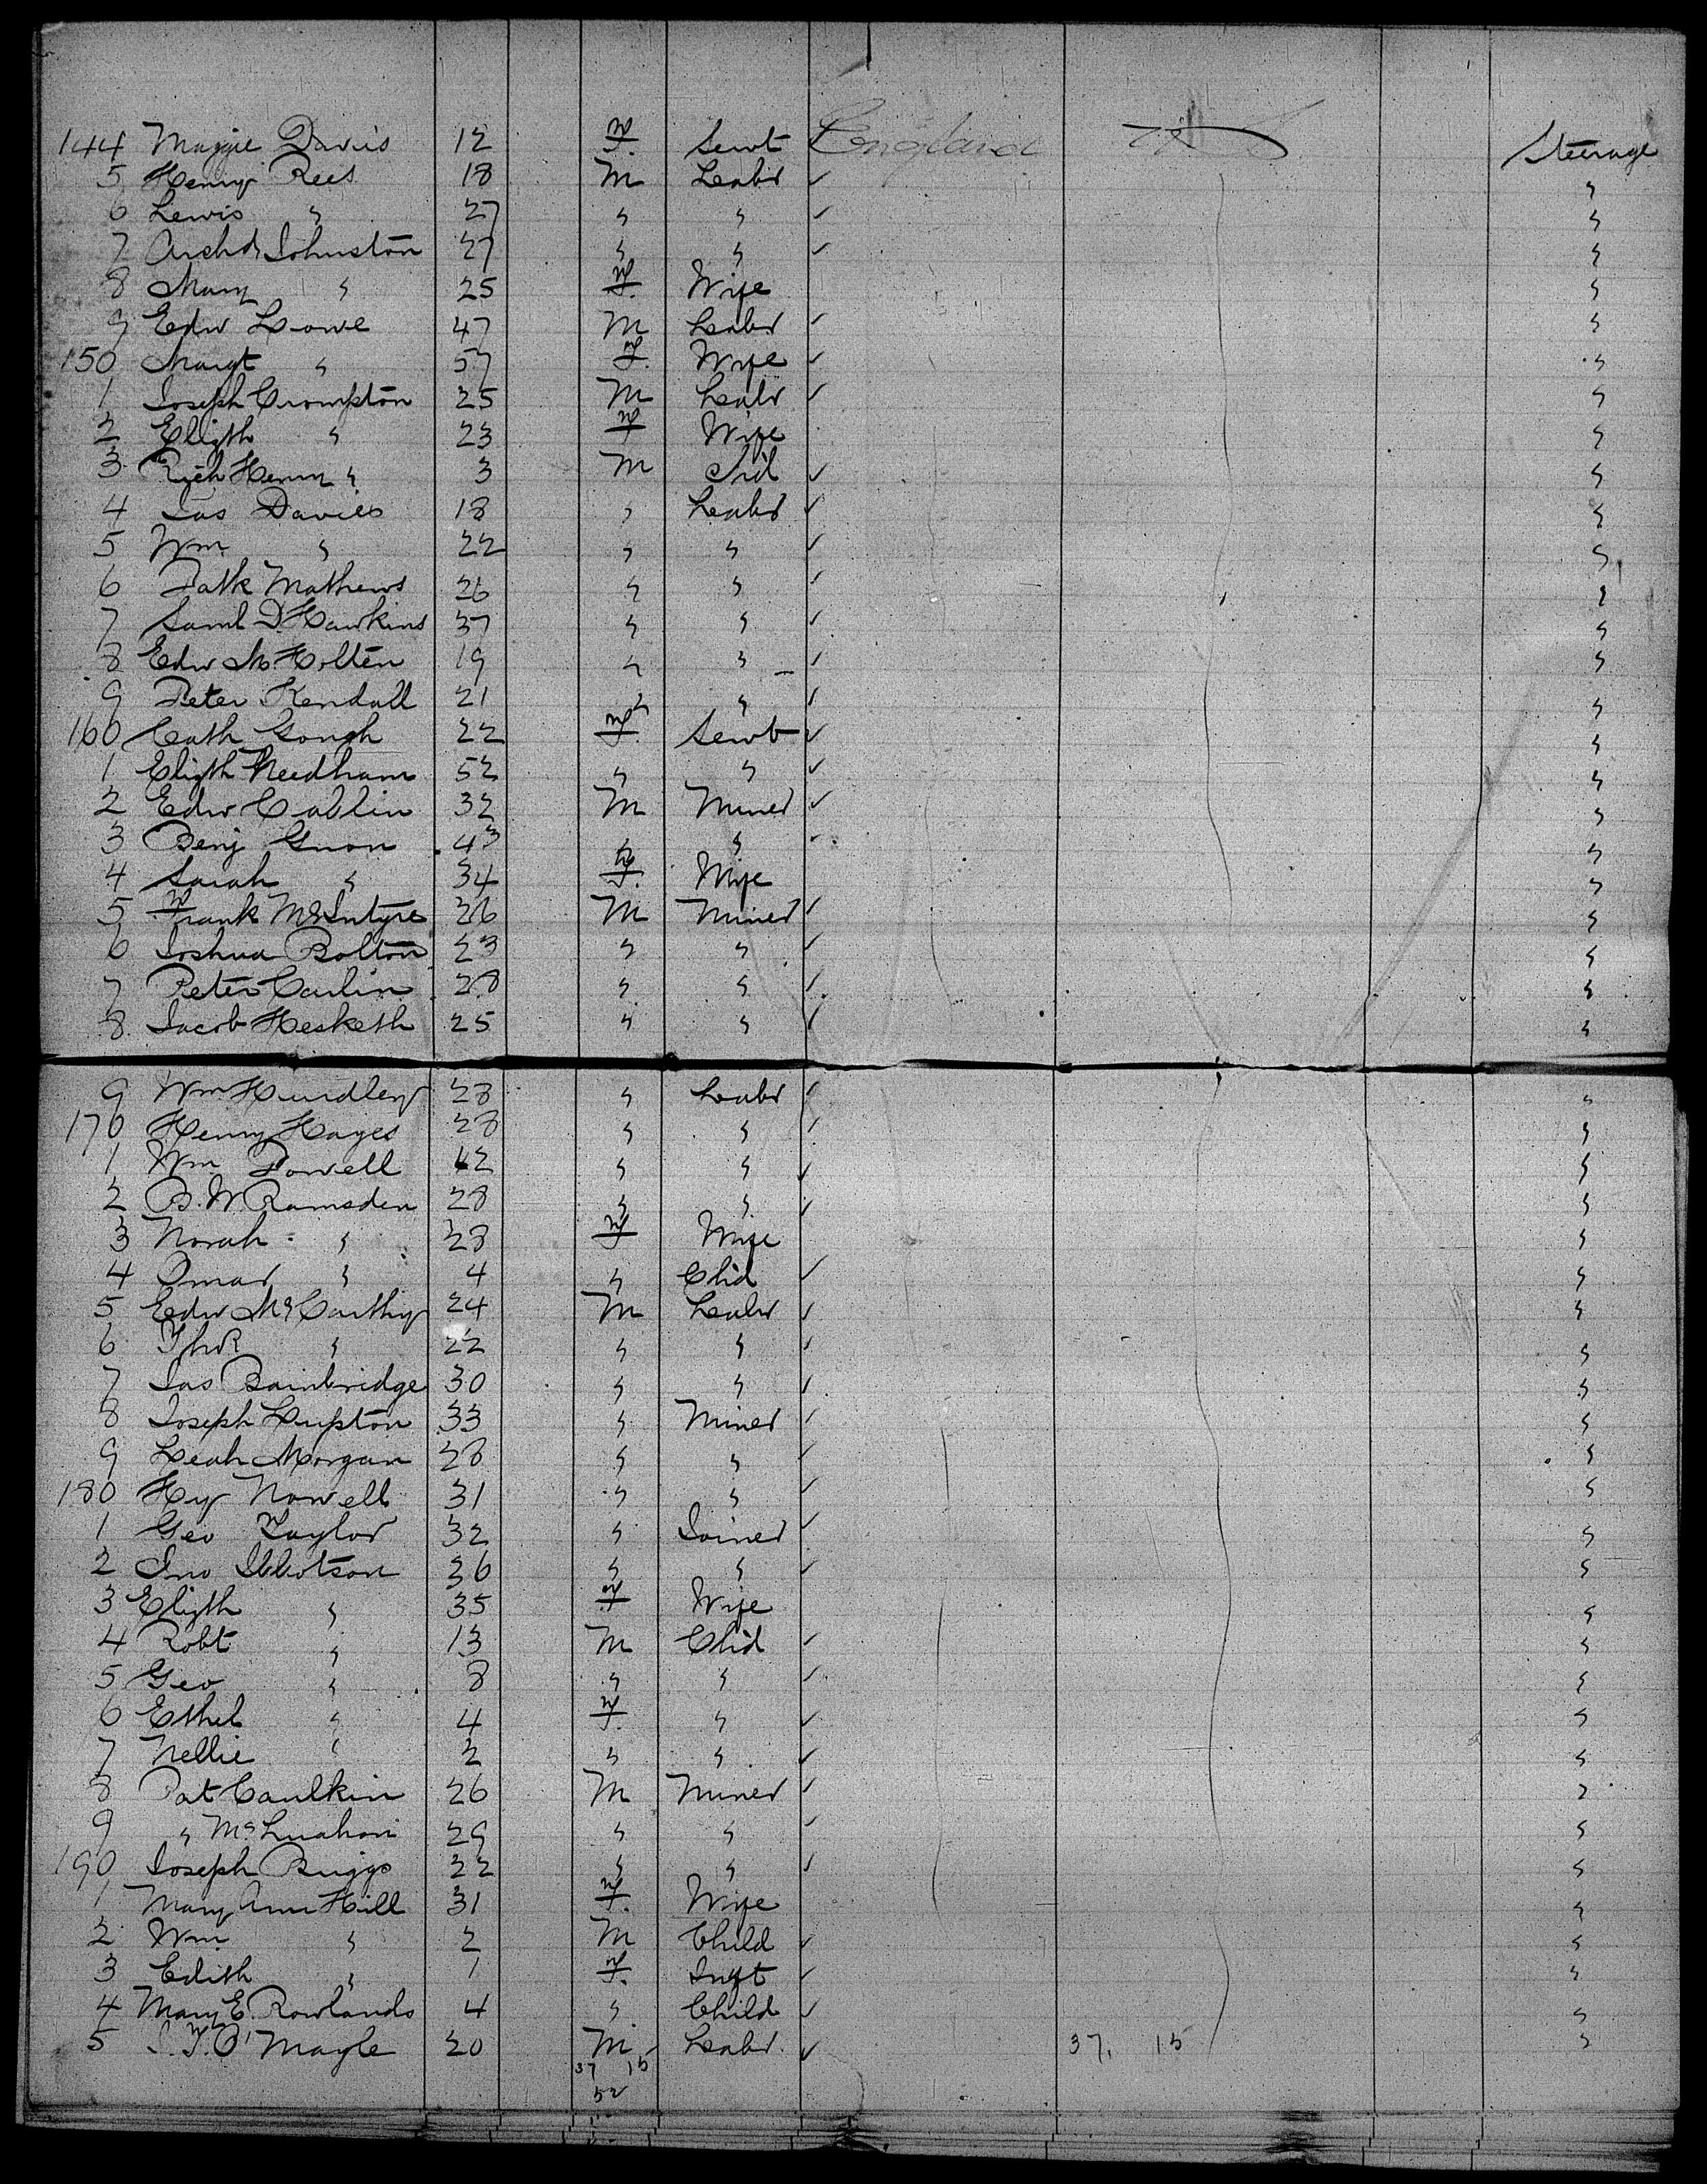 144 Maggie Davis 12 F. Servt England Steerage
5 Henry Rees 18 M Labr "
6 Lewis " 27 " " "
7 Archd Johnston 27 " " "
8 Mary " 25 F. Wife "
9 Edw Lowe 47 M Labr "
150 Margt " 57 F. Wife "
1 Joseph Crompton 25 M Labr "
2 Elizth " 23 F Wife "
3 Rich Henry " 3 M Chd "
4 Jas Davies 18 " Labr "
5 Wm " 22 " " "
6 Patk Mathews 26 " " "
7 Saml D. Hawkins 37 " " "
8 Edw M. Holten 19 " " "
9 Peter Kendall 21 " " "
160 Cath Gough 22 F. Servt "
1 Elizth Needham 52 " " "
2 Edw Cablin 32 M Miner "
3 Benj 43 " " "
4 Sarah " 34 F. Wife "
5 Frank McIntyre 26 M Miner "
6 Joshua Bolton 23 " " "
7 Peter Carlin 28 " " "
8 Jacob Hesketh 25 " " "
9 Wm Hurdley 28 " Labr "
170 Henry Hayes 28 " " "
1 Wm Powell 42 " " "
2 B. W. Ramsden 28 " " "
3 Norah " 28 F Wife "
4 Omar " 4 " Chd "
5 Edw McCarthy 24 M Labr "
6 " 22 " " "
7 Jas Bainbridge 30 " " "
8 Joseph Lupton 33 " Miner "
9 Leah Morgan 28 " " "
180 Hy Nowell 31 " " "
1 Geo Taylor 32 " Joiner "
2 Jno Ibbotson 36 " " "
3 Elizth " 35 F Wife "
4 Robt " 13 M Chd "
5 Geo " 8 " " "
6 Ethel " 4 F. " "
7 Nellie " 2 " " "
8 Pat Caulkin 26 M Miner "
9 " 29 " " "
190 Joseph Briggs 22 " " "
1 Mary Ann Hill 31 F. Wife "
2 Wm " 2 M Child "
3 Edith " 1 F. Inft "
4 Mary E. Rowlands 4 " Child "
5 20 M Labr. 37. 15 "
37 15
52